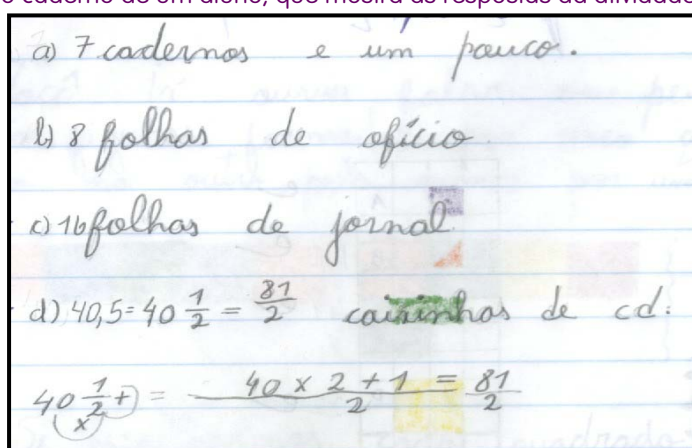 o caderno de um aluno, que mostra as respostas da atividade
a) 7 cadernos e um pouco.
b) 8 folhas de ofício.
c) 16 folhas de jornal.
d) 40,5 = 40 1/2 = 81/2 caixinhas de cd:
40 1/2 + x = 40 x 2 + 1 / 2 = 81/2